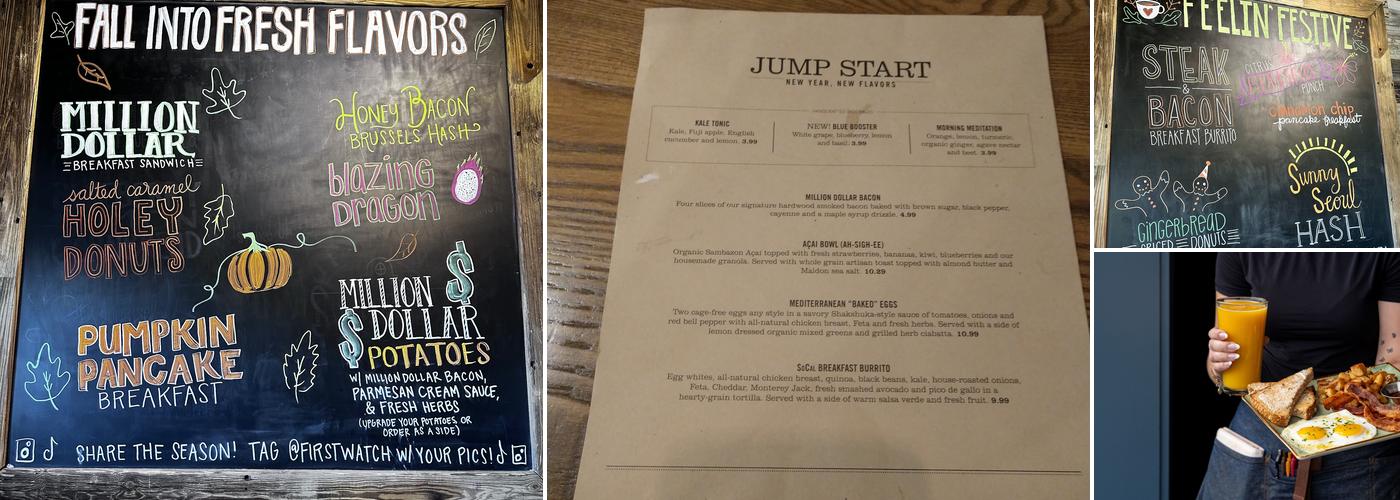 FALL INTO FRESH FLAVORS
MILLION
DOLLAR
BREAKFAST SANDWICH
Honey Bacon
BRUSSELS HASH
salted caramel
HOLEY
DONUTS
blazing
Dragon
PUMPKIN
PANCAKE
BREAKFAST
MILLION
DOLLAR
POTATOES
W/ MILLION DOLLAR BACON,
PARMESAN CREAM SAUCE,
& FRESH HERBS
(UPGRADE YOUR POTATOES OR
ORDER AS A SIDE)
SHARE THE SEASON! TAG @FIRSTWATCH W/YOUR PICS!
JUMP START
NEW YEAR, NEW FLAVORS
KALE TONIC
Kale, Fuji apple, English
cucumber and lemon. 3.99
NEW! BLUE BOOSTER
White grape, blueberry, lemon
and basil. 3.99
MORNING MEDITATION
Orange, lemon, turmeric,
organic ginger, agave nectar
and beet. 3.99
MILLION DOLLAR BACON
Four slices of our signature hardwood smoked bacon baked with brown sugar, black pepper,
cayenne and a maple syrup drizzle. 4.99
AÇAI BOWL (AH-SIGH-EE)
Organic Sambazon Açai topped with fresh strawberries, bananas, kiwi, blueberries and our
housemade granola. Served with whole grain artisan toast topped with almond butter and
Maldon sea salt. 10.29
MEDITERRANEAN "BAKED" EGGS
Two cage-free eggs any style in a savory Shakshuka-style sauce of tomatoes, onions and
red bell pepper with all-natural chicken breast, Feta and fresh herbs. Served with a side of
lemon dressed organic mixed greens and grilled herb ciabatta. 10.99
SoCal BREAKFAST BURRITO
Egg whites, all-natural chicken breast, quinoa, black beans, kale, house-roasted onions,
Feta, Cheddar, Monterey Jack, fresh smashed avocado and pico de gallo in a
hearty-grain tortilla. Served with a side of warm salsa verde and fresh fruit. 9.99
FEELIN' FESTIVE
STEAK
&
BACON
BREAKFAST BURRITO
CITRUS
PUNCH
cinnamon chip
pancake breakfast
GINGERBREAD
SPICED DONUTS
Sunny
Seoul
HASH